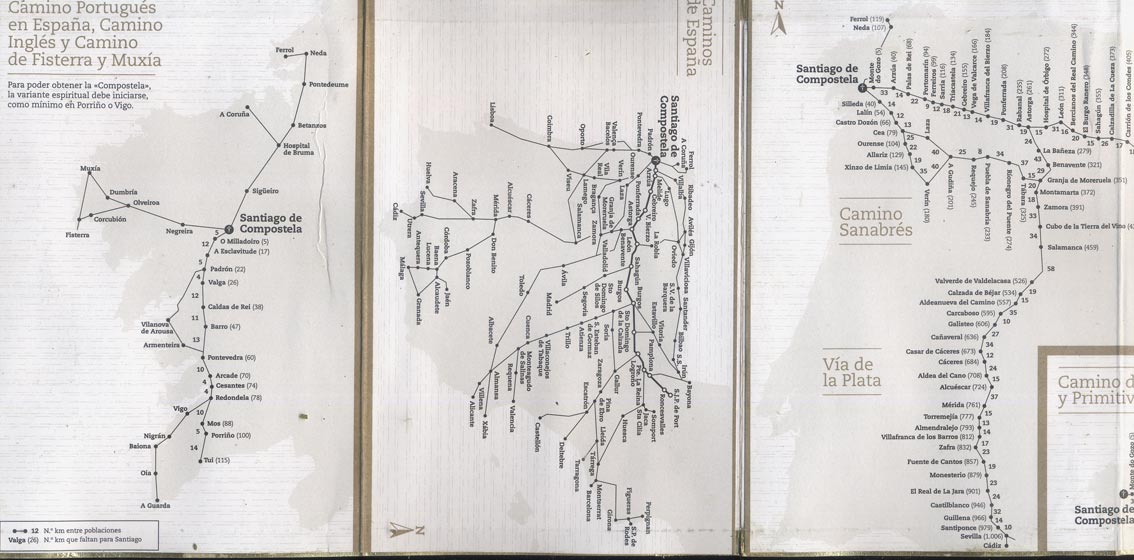 Camino Portugués
en España, Camino
Inglés y Camino
de Fisterra y Muxía
Para poder obtener la «Compostela»,
la variante espiritual debe iniciarse,
como mínimo en Porriño o Vigo.
Ferrol
Neda
Pontedeume
A Coruña
Betanzos
Hospital
de Bruma
Sigüeiro
Muxía
Dumbría
Olveiroa
Corcubión
Fisterra
Negreira
Santiago de
Compostela
5
O Milladoiro (5)
12
A Esclavitude (17)
5
Padrón (22)
4
Valga (26)
12
Caldas de Rei (38)
Vilanova
de Arousa
11
Barro (47)
Armenteira
13
Pontevedra (60)
Arcade (70)
4
Cesantes (74)
4
Redondela (78)
Vigo
10
Mos (88)
Nigrán
5
Porriño (100)
Baiona
14
Tui (115)
Oia
A Guarda
12 N.º km entre poblaciones
Valga (26) N.º km que faltan para Santiago
Caminos
de España
Santiago de
Compostela
Lisboa
Coimbra
Oporto
Valença
Bacelos
Pontevedra
Padrón
A Coruña
Ferrol
Viseu
Lamego
Vila
Real
Verín
Laza
Ourense
Arzúa
Melide
Lugo
Villalba
Ribadeo
Huelva
Aracena
Zafra
Mérida
Alcuéscar
Cáceres
Salamanca
Bragança
Zamora
Granja de
Moreruela
Ponferrada
Astorga
Cebreiro
V. Bierzo
León
La Robla
Oviedo
Avilés
Gijón
Villaviciosa
Cádiz
Utrera
Sevilla
Antequera
Lucena
Baena
Córdoba
Málaga
Granada
Alcaudete
Jaén
Pozoblanco
Don Benito
Toledo
Ávila
Madrid
Segovia
Valladolid
Benavente
Sahagún
Sto
Domingo
de Silos
Burgos
Burgos
S.V. de la
Barquera
Santander
Albacete
Cuenca
Villaconejos
de Trabaque
Monteagudo
de Salinas
Requena
Almansa
Villena
Alicante
Xàbia
Valencia
Trillo
Atienza
S. Esteban
de Gormaz
Soria
Sto Domingo
de la Calzada
Estavillo
Vitoria
Bilbao
S.S.
Irún
Bayona
Pamplona
Logroño
Pte. La Reina
Roncesvalles
S.J.P. de Port
Castellón
Escatrón
Zaragoza
Gallur
Pina
de Ebro
Lleida
Huesca
Sta Cilia
Jaca
Somport
Deltebre
Tarragona
Tàrrega
Barcelona
Montserrat
Girona
Figueres
S.P. de
Rodes
Perpignan
N
N
Ferrol (119)
Neda (107)
Santiago de
Compostela
Monte
do Gozo (5)
Arzúa (40)
Palas de Rei (68)
Portomarín (94)
Ferreiros (99)
Sarria (116)
Triacastela (134)
Cebreiro (155)
Vega de Valcarce (166)
Villafranca del Bierzo (184)
Ponferrada (208)
Rabanal (235)
Astorga (261)
Hospital de Órbigo (272)
León (311)
Bercianos del Real Camino (344)
El Burgo Ranero (348)
Sahagún (355)
Calzadilla de La Cueza (373)
Carrión de los Condes (405)
Silleda (40)
Lalín (54)
Castro Dozón (66)
Cea (79)
Ourense (104)
Allariz (129)
Xinzo de Limia (145)
Laza
Verín (180)
A Gudiña (201)
Requejo (245)
Puebla de Sanabria (233)
Rionegro del Puente (274)
Tábara (325)
La Bañeza (279)
Benavente (321)
Granja de Moreruela (351)
Montamarta (372)
Zamora (391)
Cubo de la Tierra del Vino
Salamanca (459)
58
Camino
Sanabrés
Valverde de Valdelacasa (526)
19
Calzada de Béjar (534)
Aldeanueva del Camino (557)
15
Carcaboso (595)
35
Galisteo (606)
10
27
Cañaveral (636)
34
Casar de Cáceres (673)
12
Cáceres (684)
Aldea del Cano (708)
15
Alcuéscar (724)
37
Mérida (761)
15
Torremejía (777)
13
Almendralejo (793)
14
Villafranca de los Barros (812)
17
Zafra (832)
23
Fuente de Cantos (857)
19
Monesterio (879)
23
El Real de La Jara (901)
24
Castilblanco (946)
32
Guillena (966)
14
Santiponce (979)
10
Sevilla (1.006)
Cádiz
Vía de
la Plata
Camino d
y Primitiv
Monte do Gozo (5)
Santiago de
Compostela